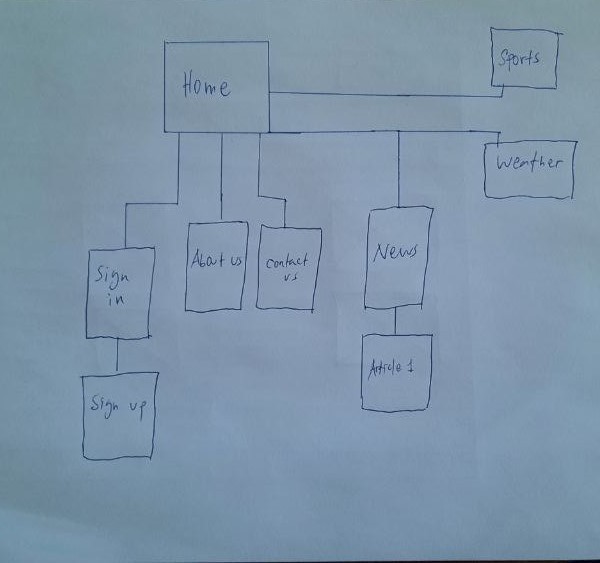 Home
Sports
Weather
Sign
in
About us
Contact
us
News
Sign up
Article 1